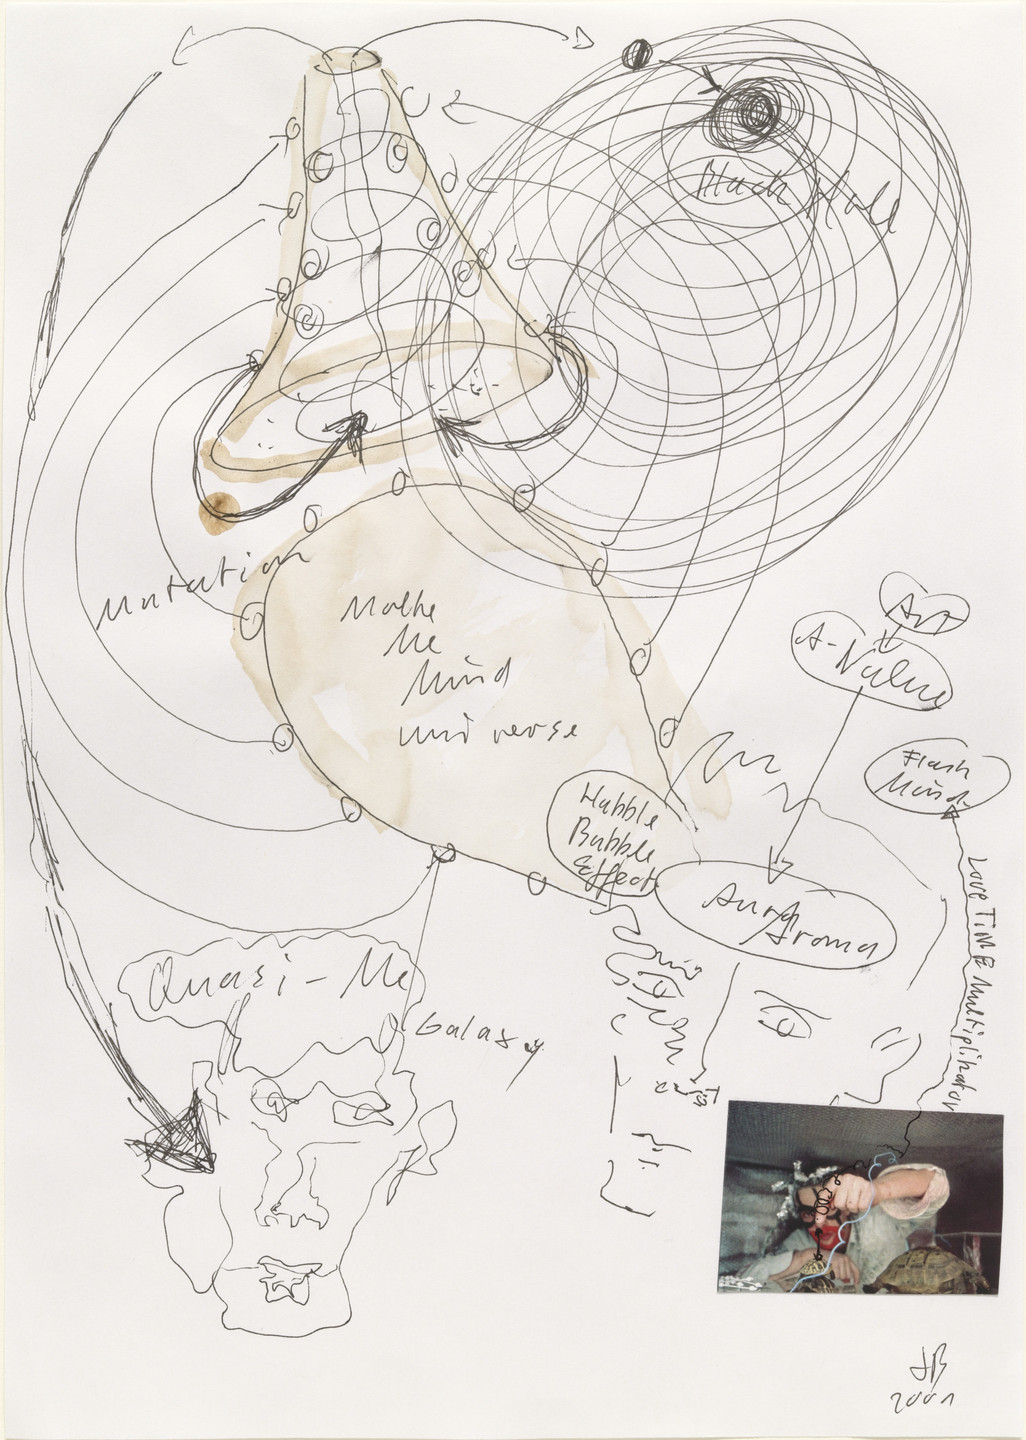 Black Hole
Mutation
Mothe
Me
Mind
universe
Art
A-Nature
Flash
Mind
Hubble
Bubble
Effect
Aura
Aroma
Love TIME Multiplikator
Quasi-Me
Galaxy
JB
2001